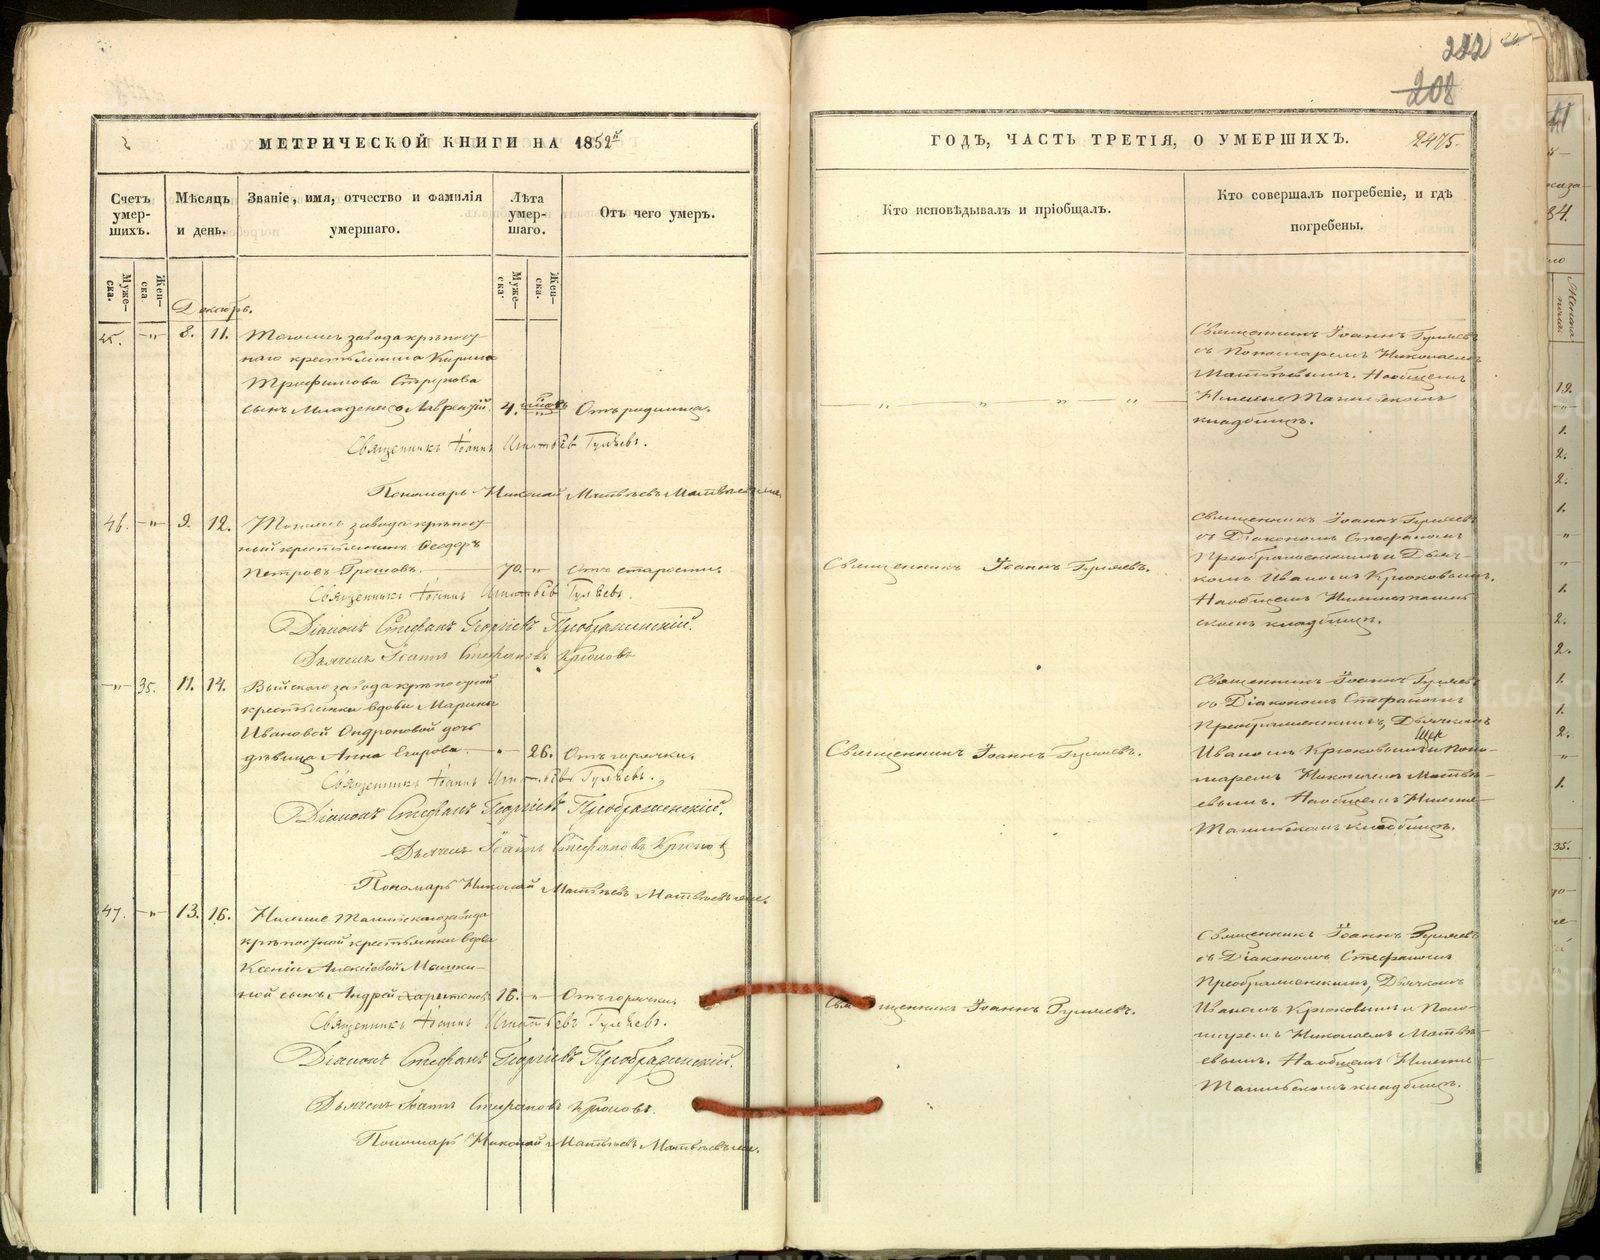 222
208
МЕТРИЧЕСКОЙ КНИГИ НА 1852й
ГОДЪ, ЧАСТЬ ТРЕТІЯ, О УМЕРШИХЪ.
2475.
Счетъ умер-шихъ.
Мѣсяцъ и день.
Званіе, имя, отчество и фамилія умершаго.
Лѣта умер-шаго.
Отъ чего умеръ.
Кто исповѣдывалъ и пріобщалъ.
Кто совершалъ погребеніе, и гдѣ погребены.
Муже-ска.
Жен-ска.
Муже-ска.
Жен-ска.
Декабрь.
45. " 8. 11. Тогожъ завода крѣпост
наго крестьянина Кирила
Трифонова
сынъ младенецъ Лаврентій. 4. Отъ родимца.
Священникъ Іоаннъ Игнатьевъ Гуляевъ.
Пономарь Николай Матвѣевъ
Священникъ Іоаннъ Гуляевъ
съ Пономаремъ Николаемъ
Матвѣевымъ. На общемъ
Нижне Тагильскомъ
кладбищѣ.
46. " 9. 12. Тогожъ завода крѣпост
ный крестьянинъ Ѳеодоръ
Петровъ 70. " Отъ старости.
Священникъ Іоаннъ Игнатьевъ Гуляевъ.
Діаконъ Стефанъ Георгіевъ Преображенскій.
Дьячекъ Іоаннъ Стефановъ Крюковъ
Священникъ Іоаннъ Гуляевъ.
Священникъ Іоаннъ Гуляевъ
съ Діакономъ Стефаномъ
Преображенскимъ и Дьяч-
комъ Иваномъ Крюковымъ.
На общемъ Нижнетагиль
скомъ кладбищѣ.
" 35. 11. 14. Выйскаго завода крѣпостной
крестьянки вдовы Марины
Ивановой Андроновой дочь
дѣвица Анна Егорова. " 26. Отъ горячки.
Священникъ Іоаннъ Игнатьевъ Гуляевъ.
Діаконъ Стефанъ Георгіевъ Преображенскій.
Дьячекъ Іоаннъ Стефановъ Крюковъ
Пономарь Николай Матвѣевъ
Священникъ Іоаннъ Гуляевъ.
Священникъ Іоаннъ Гуляевъ
съ Діакономъ Стефаномъ
Преображенскимъ, Дьячкомъ
Иваномъ Крюковымъ и Поно-
маремъ Николаемъ Матвѣ-
евымъ. На общемъ Нижне-
Тагильскомъ кладбищѣ.
47. " 13. 16. Нижне Тагильскаго завода
крѣпостной крестьянки вдовы
Ксеніи Алексіевой Мышки-
ной сынъ Андрей Харитоновъ 16. " Отъ горячки.
Священникъ Іоаннъ Игнатьевъ Гуляевъ.
Діаконъ Стефанъ Георгіевъ Преображенскій.
Дьячекъ Іоаннъ Стефановъ Крюковъ.
Пономарь Николай Матвѣевъ
Священникъ Іоаннъ Гуляевъ.
Священникъ Іоаннъ Гуляевъ
съ Діакономъ Стефаномъ
Преображенскимъ, Дьячкомъ
Иваномъ Крюковымъ и Поно-
маремъ Николаемъ Матвѣ-
евымъ. На общемъ Нижне-
Тагильскомъ кладбищѣ.